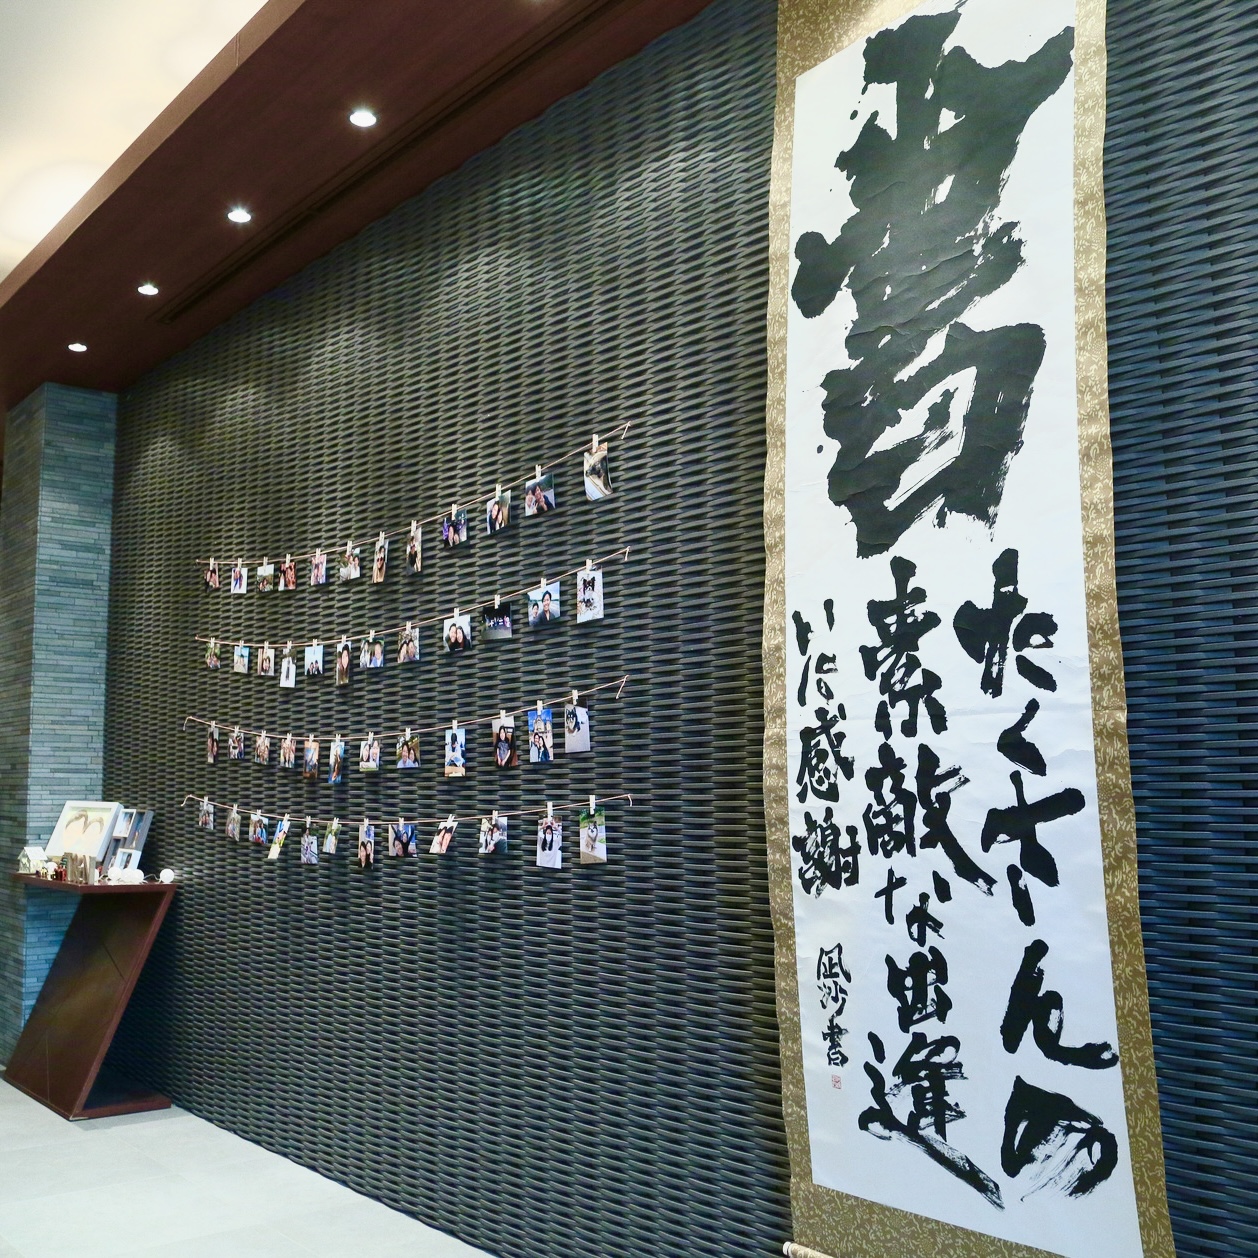 書
たくさんの
素敵な出逢
いに感謝
凪沙書